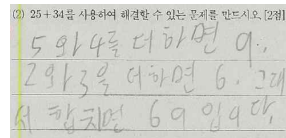 (2) 25+34를 사용하여 해결할 수 있는 문제를 만드시오. [2점]
5와 4를 더하면 9.,
2와 3을 더하면 6. 그래
서 합치면 69 입니다.